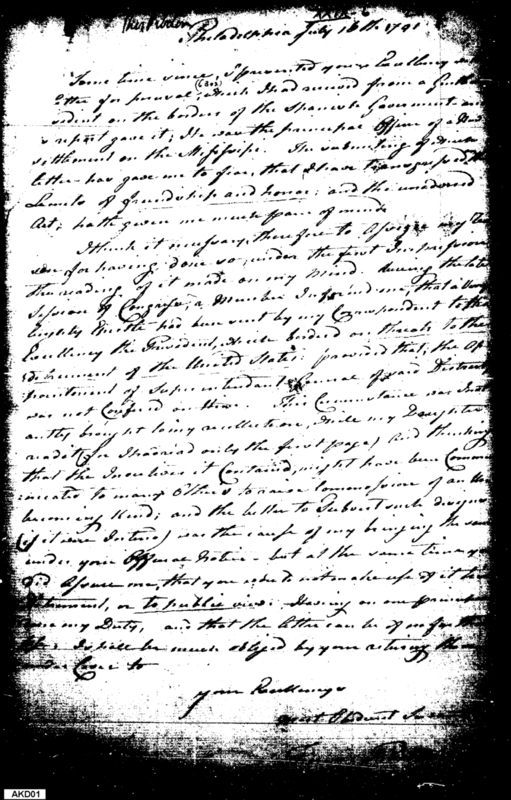 Philadelphia July 16th. 1791
Some time since, I presented your Excellency
letter for perusal, which I had received from a
resident on the borders of the Spanish Government
report gave it; He was the principal Officer of a New
settlement on the Mississipi. The submitting of
letter has given me to fear, that I have transgressed the
Limits of friendship and honor; and the unadvised
Act; hath given me much pain of mind.
I think it necessary, therefore to Assign my
son for having done so, under the first Impressions
the reading of it made on my Mind. During the late
Session of Congress, a Member Informd me, that a very
lengthy Epistle had been sent by my Correspondent to His
Excellency the President, which bordered on threats to the
detriment of the United States: provided that, the Ap
pointment of Superintendant General of said District
was not Conferd on them. This Circumstance was Inst
antly brought to my recollection, while my Daughter
read it (for I had read only the first page) and thinking
that the Incentives it Contained, might have been Commu
nicated to many Others to raise commotions of an Un
becoming Kind; and the better to Subvert such designs
(if it were Intended) was the cause of my bringing the same
under your Official Notice - but at the same time you
did Assure me, that you wished to not make use of it
detriment, or to public view: Having on one
my Duty, and that the letter can be of no further
I will be much obliged by your returning the
under Cover to
your Excellency's
most Obedient
AKD01